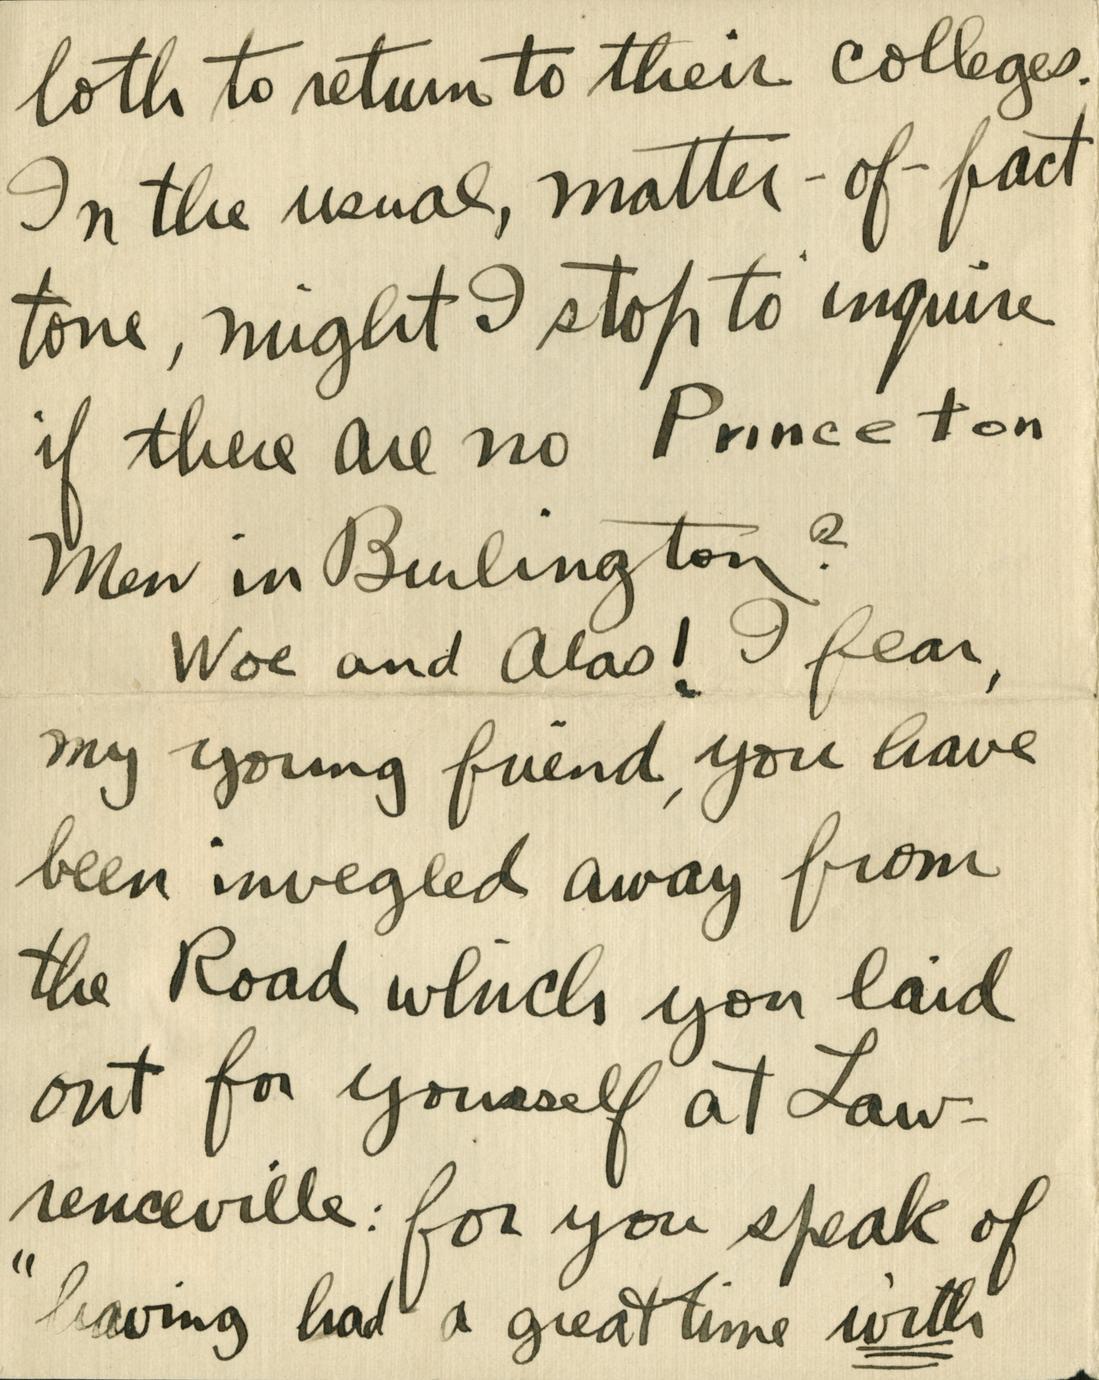 loth to return to their colleges.
In the usual, matter-of-fact
tone, might I stop to inquire
if there are no Princeton
Men in Burlington?
Woe and Alas! I fear,
my young friend, you have
been invegled away from
the Road which you laid
out for yourself at Law-
renceville: for you speak of
"having had a great time with